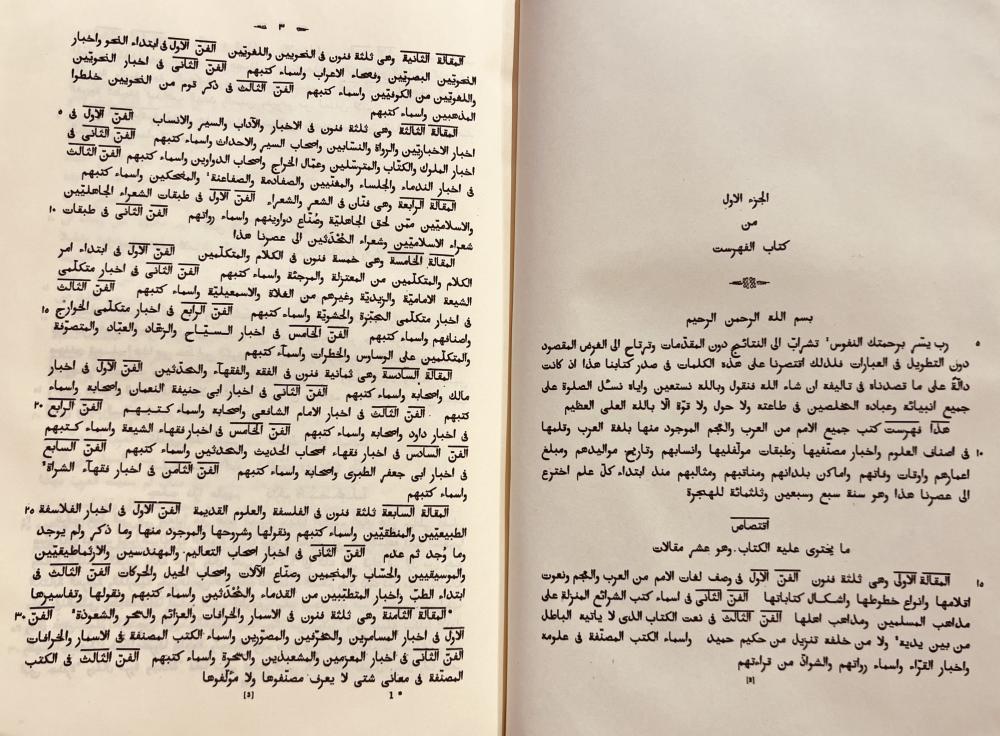 الجزء الاول
من
كتاب الفهرست
بسم الله الرحمن الرحيم
رب يسّر برحمتك النفوس' تشرابّ الى النتائج دون المقدّمات وترتاح الى الغرض المقصود
دون التطويل فى العبارات فلذلك اقتصرنا على هذه الكلمات فى صدر كتابنا هذا اذ كانت
دالّةً على ما قصدناه فى تاليفه ان شاء الله فنقول وبالله نستعين واياه نسئل الصلوة على
جميع انبيائه وعباده المخلصين فى طاعته ولا حول ولا قوّة الّا بالله العلى العظيم
هذا فهرست كتب جميع الامم من العرب والعجم الموجود منها بلغة العرب وقلمها
فى اصناف العلوم واخبار مصنّفيها وطبقات مولّفيها وانسابهم وتاريخ مواليدهم ومبلغ
اعمارهم واوقات وفاتهم واماكن بلدانهم ومناقبهم ومثالبهم منذ ابتداء كلّ علم اخترع
الى عصرنا هذا وهو سنة سبع وسبعين وثلثمائة للهجرة
اقتصاص
ما يحتوى عليه الكتاب وهو عشر مقالات
المقالة الاولى وهى ثلثة فنون الفنّ الاول فى وصف لغات الامم من العرب والعجم ونعوت
اقلامها وانواع خطوطها واشكال كتاباتها الفنّ الثانى فى اسماء كتب الشرائع المنزلة على
مذاهب المسلمين ومذاهب اهلها الفنّ الثالث فى نعت الكتاب الذى لا ياتيه الباطل
من بين يديه' ولا من خلفه تنزيل من حكيم حميد واسماء الكتب المصنّفة فى علومه
واخبار القرّاء واسماء رواتهم والشوادّ من قراءتهم
٥
١٠
١٥
[3]
٣
المقالة الثانية وهى ثلثة فنون فى النحويين واللغويّين الفنّ الاول فى ابتداء النحو واخبار
النحويّين البصريّين وفصحاء الاعراب واسماء كتبهم الفنّ الثانى فى اخبار النحويّين
واللغويّين من الكوفيّين واسماء كتبهم الفنّ الثالث فى ذكر قوم من النحويين خلطوا
المذهبين واسماء كتبهم
المقالة الثالثة وهى ثلثة فنون فى الاخبار والآداب والسير والانساب الفنّ الاول فى
اخبار الاخباريّين والرواة والنسّابين واصحاب السير والاحداث واسماء كتبهم الفنّ الثانى فى
اخبار الملوك والكتّاب والمترسّلين وعمّال الخراج واصحاب الدواوين واسماء كتبهم الفنّ الثالث
فى اخبار الندماء والجلساء والمغنّيين والصفادمة والصفاعنة' والمضحكين واسماء كتبهم
المقالة الرابعة وهى فنّان فى الشعر والشعراء الفنّ الاول فى طبقات الشعراء الجاهليّين
والاسلاميّين ممّن لحق الجاهليّة وصُنّاع دواوينهم واسماء رواتهم الفنّ الثانى فى طبقات
شعراء الاسلاميّين وشعراء المُحْدَثين الى عصرنا هذا
المقالة الخامسة وهى خمسة فنون فى الكلام والمتكلّمين الفنّ الاول فى ابتداء امر
الكلام والمتكلّمين من المعتزلة والمرجئة واسماء كتبهم الفنّ الثانى فى اخبار متكلّمى
الشيعة الاماميّة والزيديّة وغيرهم من الغلاة والاسمعيليّة واسماء كتبهم الفنّ الثالث
فى اخبار متكلّمى المجبّرة والحشويّة واسماء كتبهم الفنّ الرابع فى اخبار متكلّمى الخوارج
واصنافهم واسماء كتبهم الفنّ الخامس فى اخبار السيّاح والزهّاد والعبّاد والمتصرّفة
والمتكلّمين على الوساوس والخطرات واسمآء كتبهم
المقالة السادسة وهى ثمانية فنون فى الفقه والفقهآء والمحدّثين الفنّ الاول فى اخبار
مالك واصحابه واسماء كتبهم الفنّ الثانى فى اخبار ابى حنيفة النعمان واصحابه واسماء
كتبهم الفنّ الثالث فى اخبار الامام الشافعى واصحابه واسماء كتبهم الفنّ الرابع
فى اخبار داود واصحابه واسماء كتبهم الفنّ الخامس فى اخبار فقهاء الشيعة واسماء كتبهم
الفنّ السادس فى اخبار فقهاء اصحاب الحديث والمحدّثين واسماء كتبهم الفنّ السابع
فى اخبار ابى جعفر الطبرى واصحابه واسماء كتبهم الفنّ الثامن فى اخبار فقهآء الشراة'
واسماء كتبهم
المقالة السابعة ثلثة فنون فى الفلسفة والعلوم القديمة الفنّ الاول فى اخبار الفلاسفة
الطبيعيّين والمنطقيّين واسماء كتبهم ونقولها وشروحها والموجود منها وما ذكر ولم يوجد
وما وُجد ثم عدم الفنّ الثانى فى اخبار اصحاب التعاليم والمهندسين والارثماطيقيّين
والموسيقيين والحسّاب والمنجمين وصنّاع الآلات واصحاب الحيل والحركات الفنّ الثالث فى
ابتداء الطبّ واخبار المتطبّبين من القدماء والمُحْدَثين واسماء كتبهم ونقولها وتفاسيرها
*المقالة الثامنة وهى ثلثة فنون فى الاسمار والخرافات والعزائم والسحر والشعوذة' الفنّ
الاول فى اخبار المسامرين والمخرّفين والمصوّرين واسماء الكتب المصنفة فى الاسمار والخرافات
الفنّ الثانى فى اخبار المعزمين والمشعبذين والسحرة واسماء كتبهم الفنّ الثالث فى الكتب
المصنّفة فى معانى شتى لا يعرف مصنّفوها ولا مؤلّفوها
٥
١٠
١٥
٢٠
٢٥
٣٠
1 *
[3]